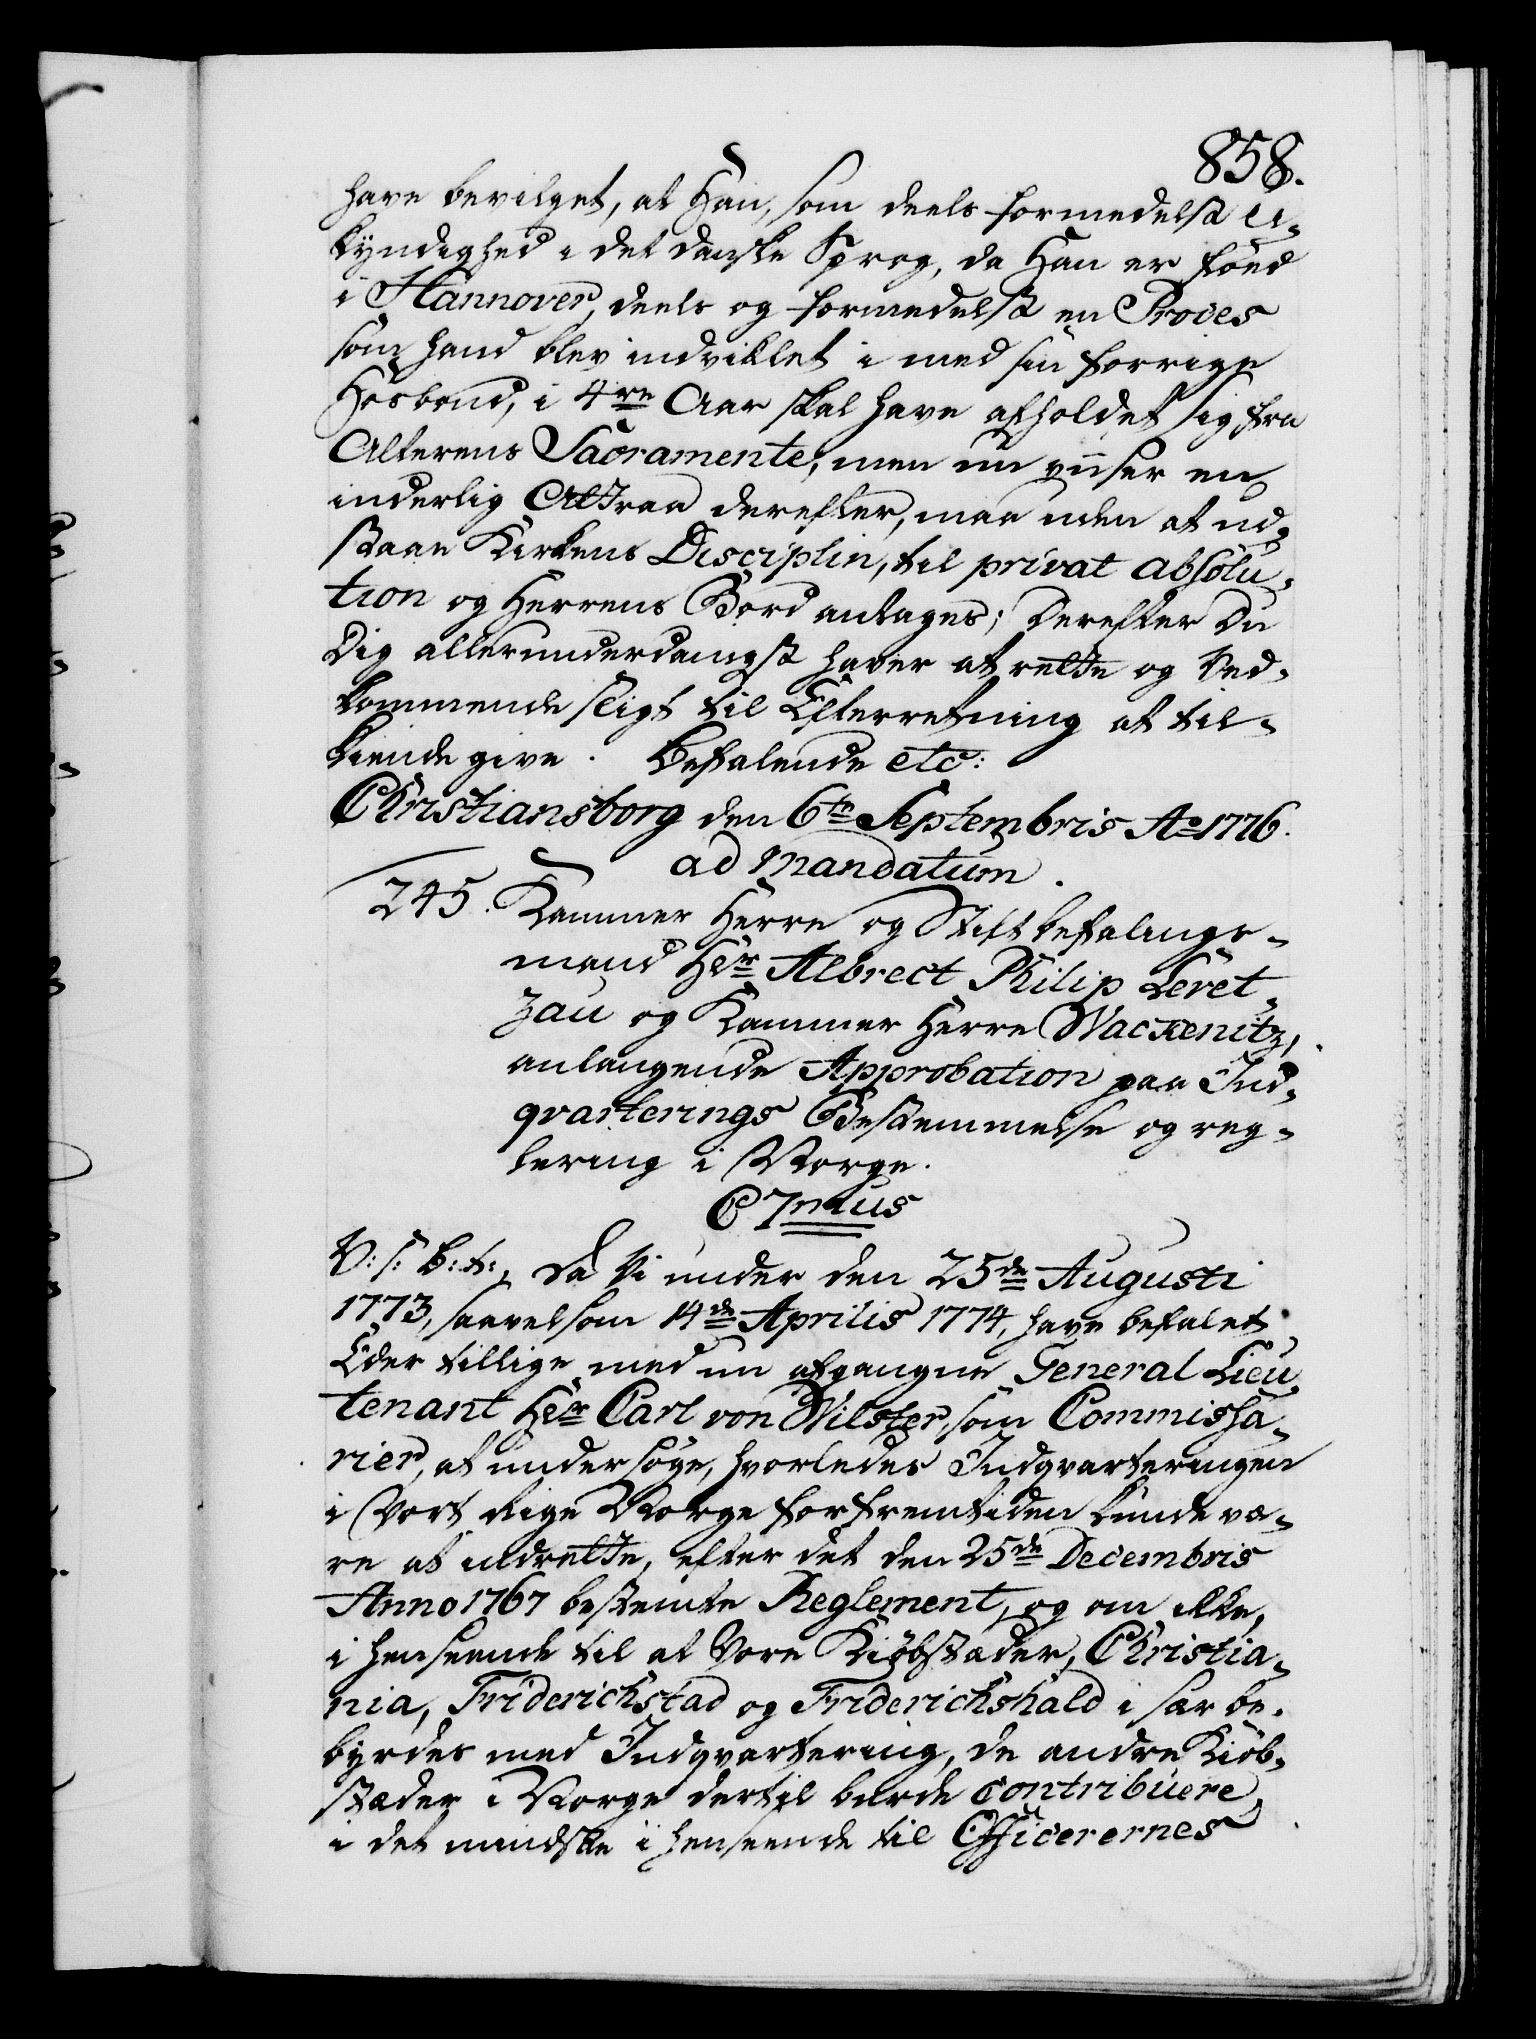 858.
have bevilget, at Han, som deels formedelst U-
kyndighed i det danske Sprog, da Han er föed
i Hannover, deels og formedelst en Proces
som hand blev indviklet i med sin forrige
Hosbond, i 4re Aar skal have afholdet sig fra
Alterens Sacramente, men nu viiser en
inderlig Attraa derefter, maa uden at ud-
staae Kirkens Disciplin, til privat absolu-
tion og Herrens Bord antages; Derefter Du
Dig allerunderdanigst haver at rette og Ved-
kommende sligt til Efterretning at til-
kiende give. Befalende etc:
Christiansborg den 6te Septembris Ao 1776.
ad Mandatum.
245. Kammer Herre og Stiftbefalings-
mand Hr Albrect Philip Levet-
zau og Kammer Herre Wackenitz,
anlangende Approbation paa Ind-
qvarterings Bestemmelse og reg-
lering i Norge.
C 7mus
V: S: B: t:, Da Vi under den 25de Augusti
1773, saavelsom 14de Aprilis 1774, have befalet
Eder tillige med nu afgangne General Lieu-
tenant Hr Carl von Wilster, som Commissa-
rier, at undersöge, hvorledes Indqvarteringen
i Vort Rige Norge for Fremtiden kunde væ-
re at indrette, efter det den 25de Decembris
Anno 1767 bestemte Reglement, og om ikke,
i henseende til at Vore Kiöbstæder, Christia-
nia, Friderichstad og Friderichshald i sær be-
byrdes med Indqvartering, de andre Kiöb-
stæder i Norge dertil burde contribuere,
i det mindste i henseende til Officerernes